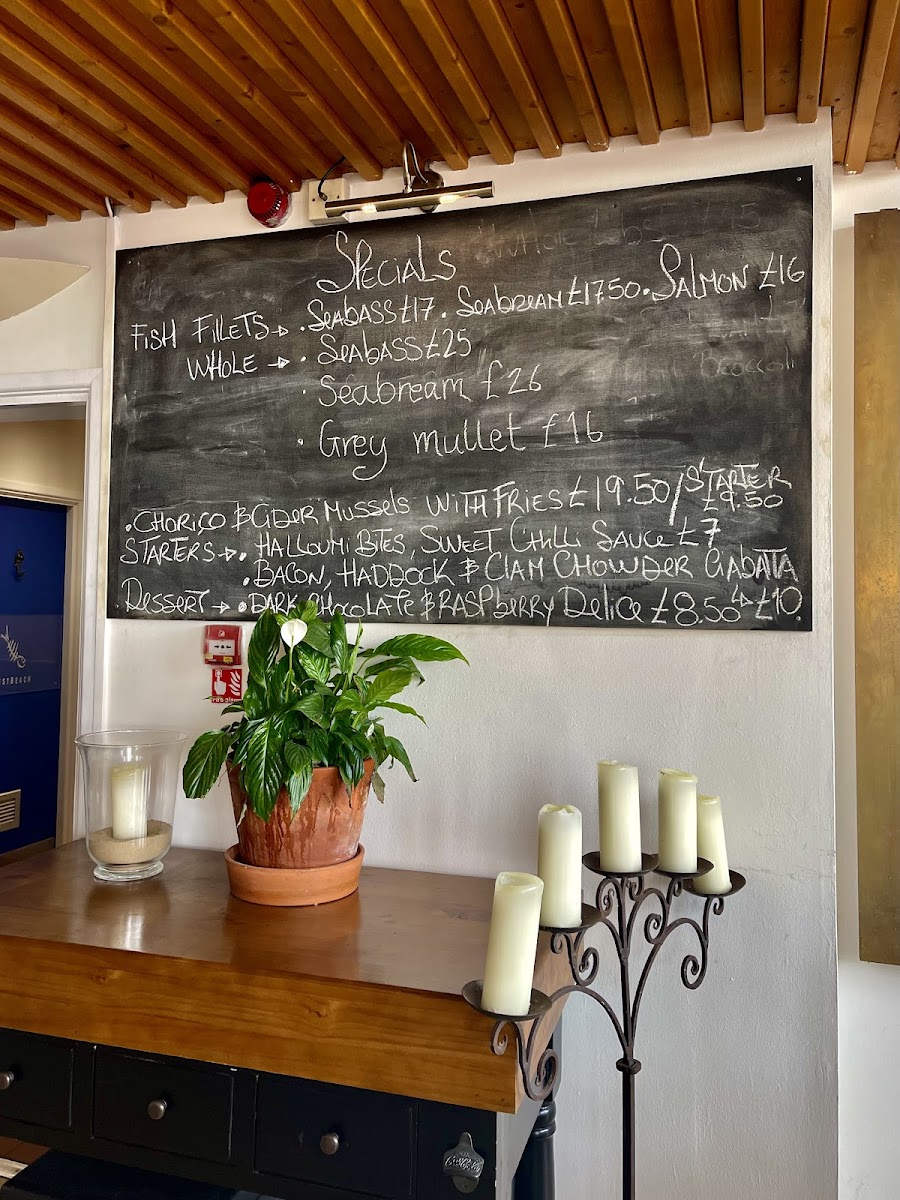 SPECIALS
FISH FILLETS → · SEABASS £17 · SEABREAM £17.50 · SALMON £16
WHOLE → · SEABASS £25
· Seabream £26
· Grey mullet £16
· CHORIÇO & CIDER MUSSELS WITH FRIES £19.50 / STARTER £9.50
STARTERS → · HALLOUMI BITES, SWEET CHILLI SAUCE £7
· BACON, HADDOCK & CLAM CHOWDER CIABATTA ↳ £10
DESSERT → · DARK CHOCOLATE & RASPBERRY DELICE £8.50
Broccoli
STBEACH